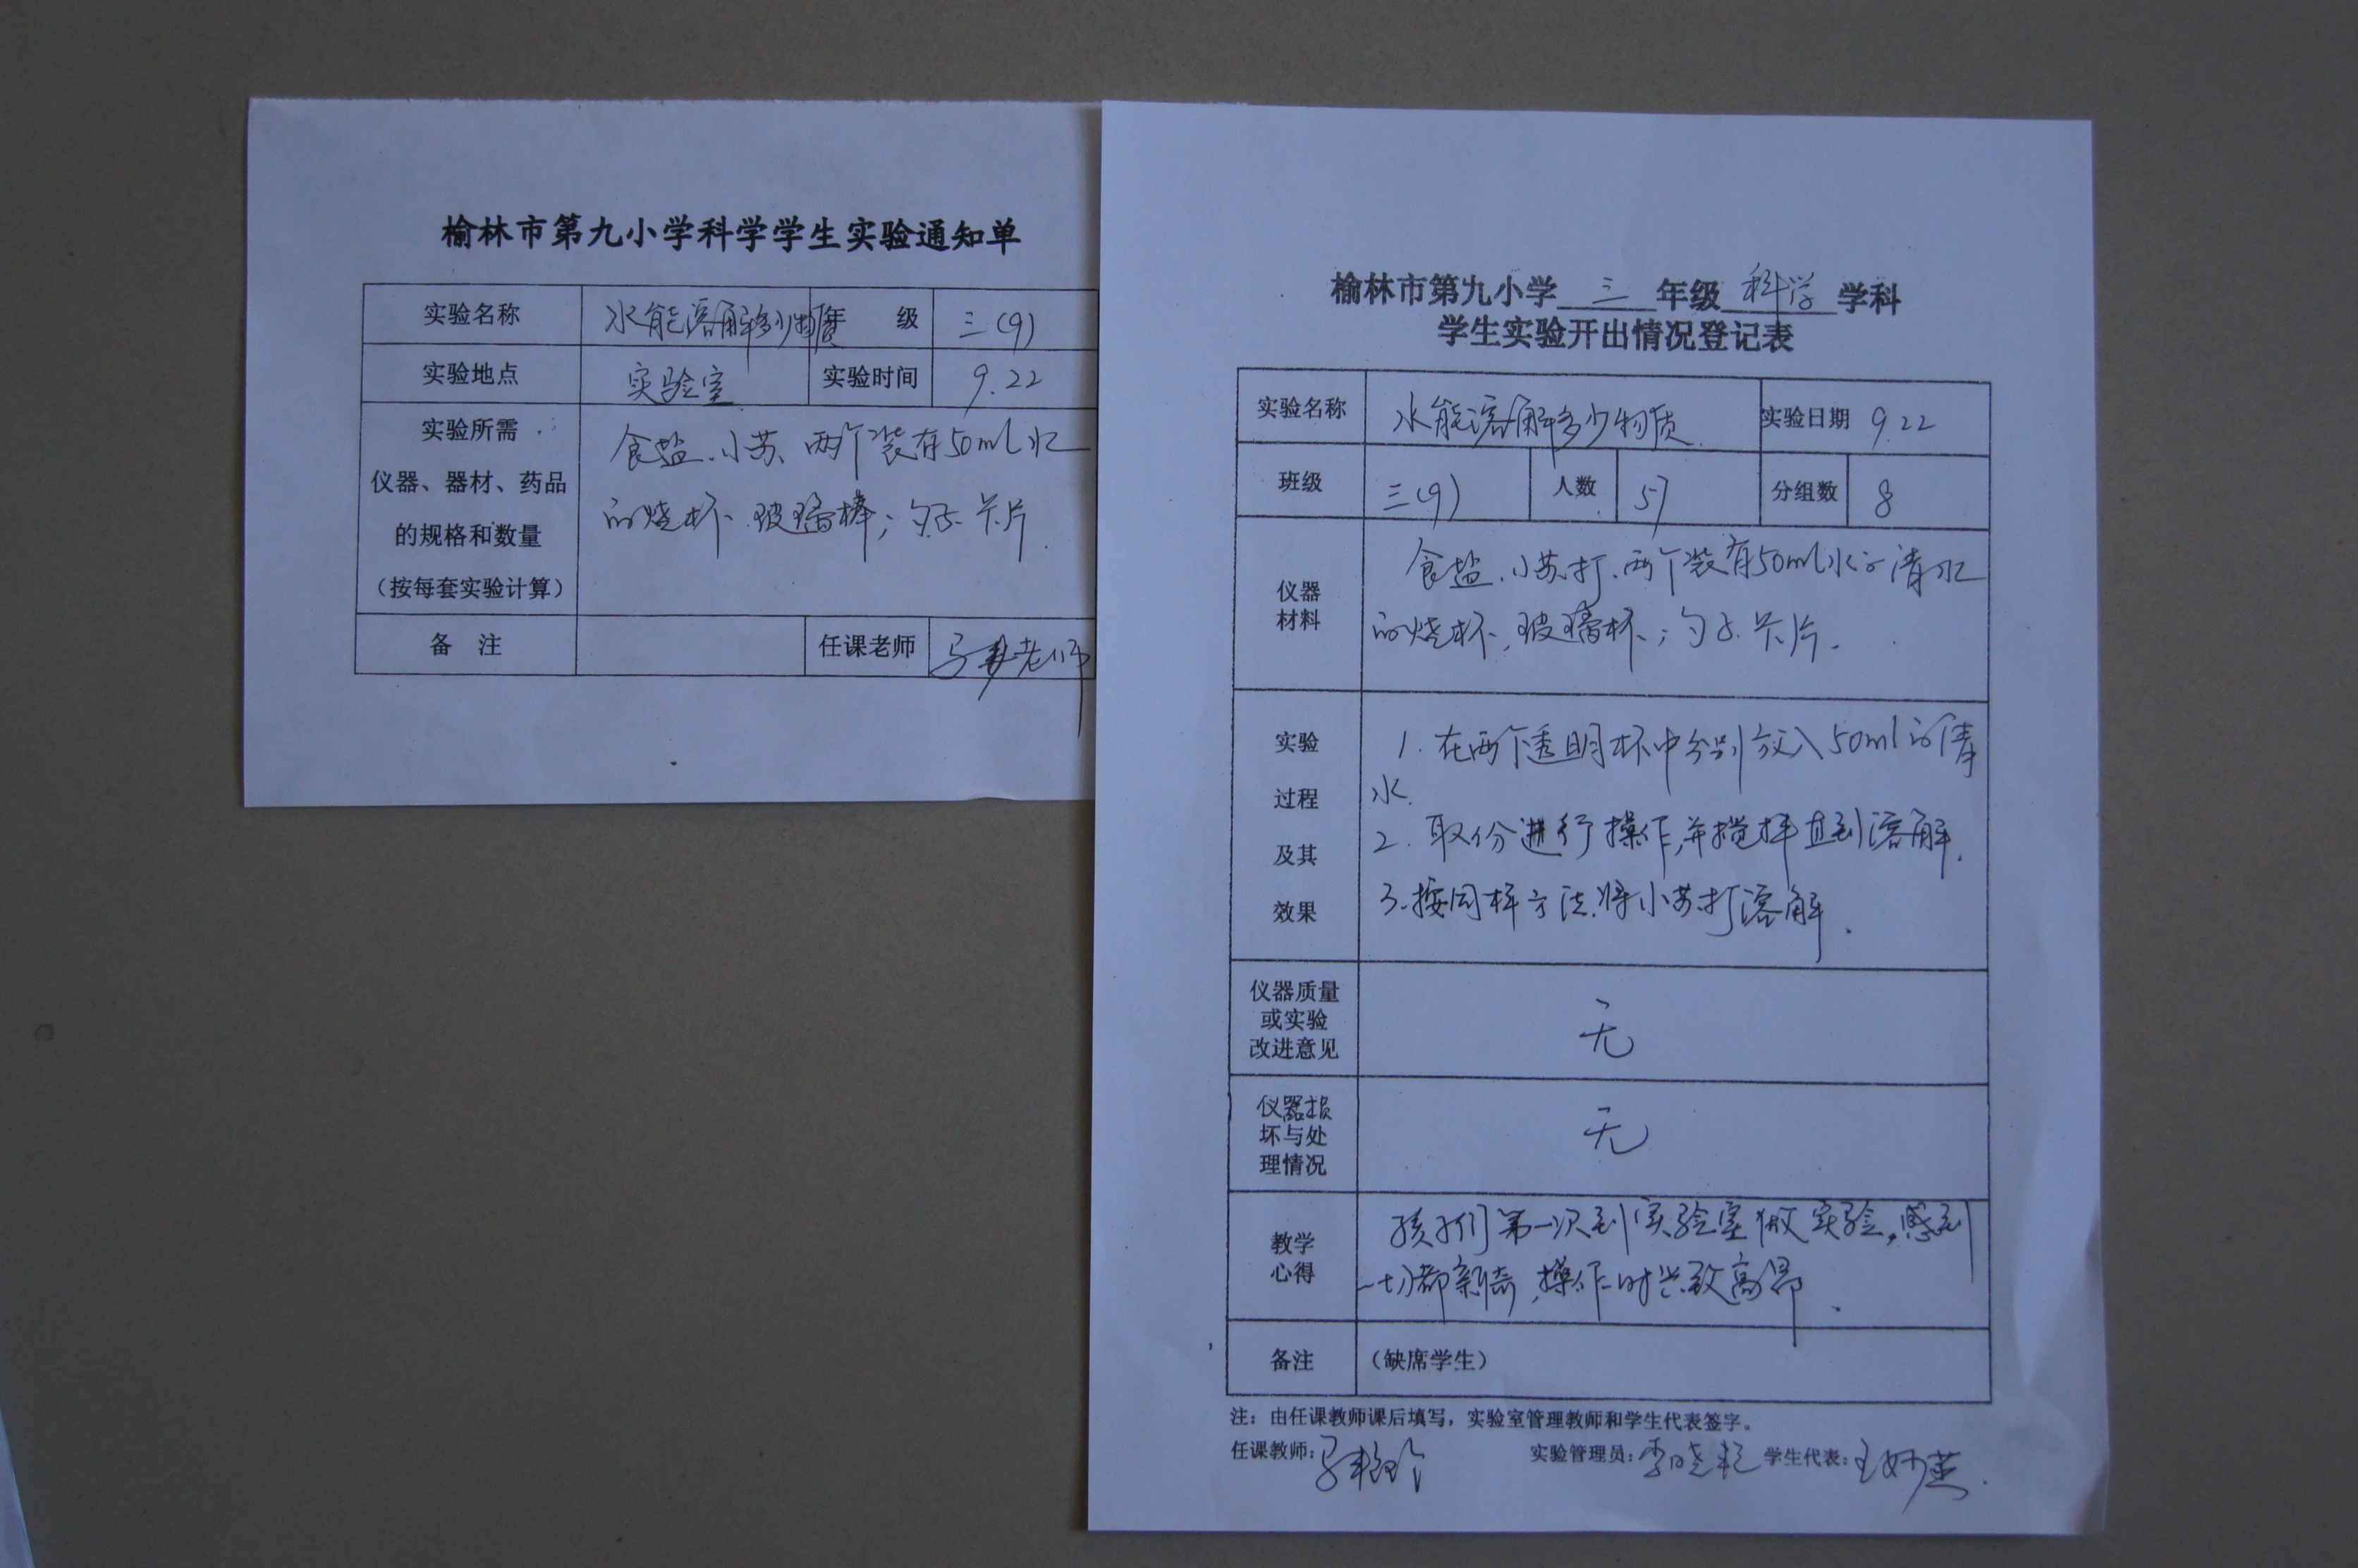 榆林市第九小学科学学生实验通知单
实验名称 水能溶解多少物质 年 级 三(9)
实验地点 实验室 实验时间 9.22
实验所需
仪器、器材、药品
的规格和数量
(按每套实验计算)
食盐、小苏、两个装有50ml水
的烧杯、玻璃棒;勺子、卡片.
备 注 任课老师 马 老师
榆林市第九小学 三 年级 科学 学科
学生实验开出情况登记表
实验名称 水能溶解多少物质. 实验日期 9.22
班级 三(9) 人数 57 分组数 8
仪器
材料
食盐、小苏打、两个装有50ml水 清水
的烧杯、玻璃杯、;勺子、卡片.
实验
过程
及其
效果
1.在两个透明杯中分别放入50ml的清
水.
2.取份进行操作,并搅拌直到溶解.
3.按同样方法,将小苏打溶解.
仪器质量
或实验
改进意见
无
仪器损
坏与处
理情况
无
教学
心得
孩子们第一次到实验室做实验,感到
一切都新奇,操作时兴致高昂.
备注 (缺席学生)
注:由任课教师课后填写,实验室管理教师和学生代表签字。
任课教师:马 实验管理员:李晓 学生代表:王妙燕.